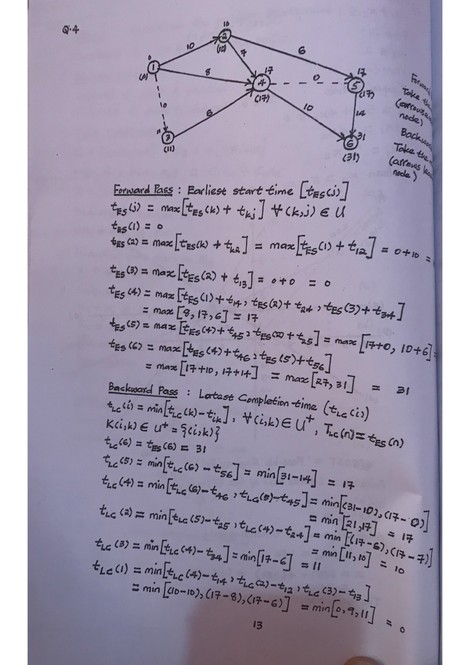 Q.4
10
2
(10)
10
7
6
0
1
(0)
8
17
4
(17)
0
17
5
(17)
0
6
10
14
3
(11)
31
6
(31)
Forward
Take the
(arrows
node)
Backward
Take the
(arrows
node)
Forward Pass : Earliest start time [tES(j)]
tES(j) = max[tES(k) + tkj] ∀(k,j) ∈ U
tES(1) = 0
tES(2) = max[tES(k) + tk2] = max[tES(1) + t12] = 0+10 =
tES(3) = max[tES(2) + t13] = 0+0 = 0
tES(4) = max[tES(1)+t14, tES(2)+t24, tES(3)+t34]
= max[8,17,6] = 17
tES(5) = max[tES(4)+t45, tES(2)+t25] = max[17+0, 10+6] =
tES(6) = max[tES(4)+t46, tES(5)+t56]
= max[17+10, 17+14] = max[27,31] = 31
Backward Pass : Latest Completion time (tLC(i))
tLC(i) = min[tLC(k) - tik], ∀(i,k) ∈ U⁺, TLC(n) = tES(n)
K(i,k) ∈ U⁺ = {(i,k)}
tLC(6) = tES(6) = 31
tLC(5) = min[tLC(6) - t56] = min[31-14] = 17
tLC(4) = min[tLC(6)-t46, tLC(5)-t45] = min[(31-10), (17-0)]
= min[21,17] = 17
tLC(2) = min[tLC(5)-t25, tLC(4)-t24] = min[(17-6), (17-7)]
= min[11,10] = 10
tLC(3) = min[tLC(4)-t34] = min[17-6] = 11
tLC(1) = min[tLC(4)-t14, tLC(2)-t12, tLC(3)-t13]
= min[(10-10), (17-8), (17-6)] = min[0,9,11] = 0
13